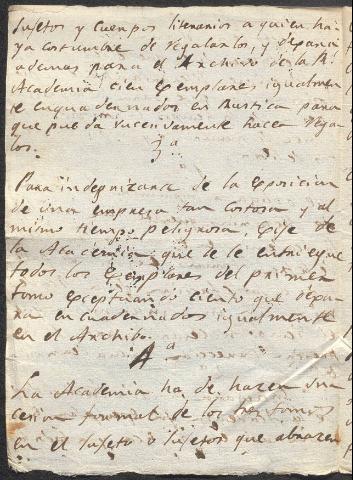 sujetos y cuerpos literarios a quien ha-
ya costumbre de regalarlos, y depará
ademas para el Archivo de la Rl.
Academia cien exemplares igualmen-
te enquadernados en Rustica para
que pueda sucesivamente hacer rega-
los.
3a
Para indegnizarce de la exposicion
de una empreza tan costosa y al
mismo tiempo peligrosa, exije de
la Academia que se le entriegue
todos los exemplares del primer
tomo exceptuando ciento que depa-
ra encuadernados igualmente
en el Archibo.
4a
La Academia ha de hazer una
cecion formal de los tres tomos
en el sujeto o sujetos que abrazen